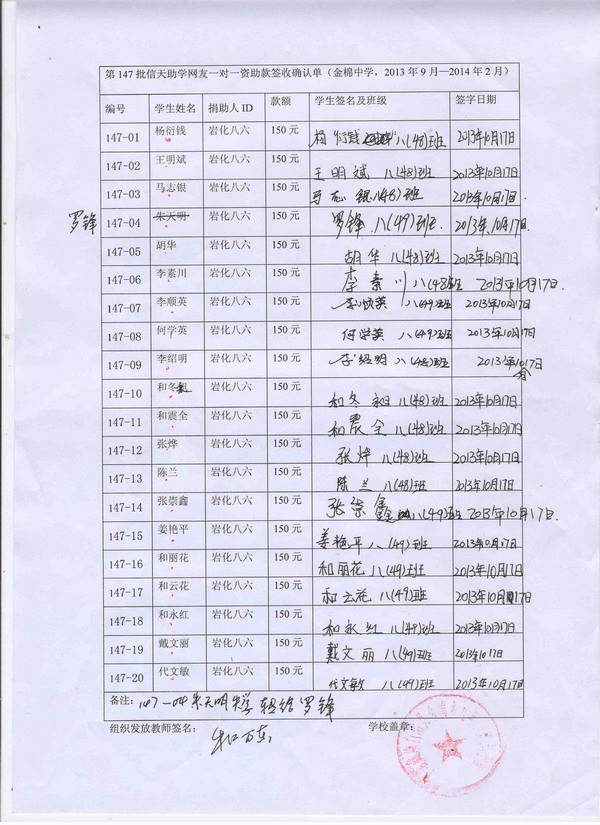 第 147 批信天助学网友一对一资助款签收确认单（金棉中学，2013 年 9 月—2014 年 2 月）
编号 学生姓名 捐助人 ID 款额 学生签名及班级 签字日期
147-01 杨衍钱 岩化八六 150 元 杨衍钱 八(48)班 2013年10月17日
147-02 王明斌 岩化八六 150 元 王明斌 八(48)班 2013年10月17日
147-03 马志银 岩化八六 150 元 马志银 八(48)班 2013年10月17日
罗锋 147-04 朱天明 岩化八六 150 元 罗锋 八(49)班 2013年10月17日
147-05 胡华 岩化八六 150 元 胡华 八(48)班 2013年10月17日
147-06 李素川 岩化八六 150 元 李素川 八(48)班 2013年10月17日
147-07 李顺英 岩化八六 150 元 李顺英 八(49)班 2013年10月17日
147-08 何学英 岩化八六 150 元 何学英 八(49)班 2013年10月17日
147-09 李绍明 岩化八六 150 元 李绍明 八(48)班 2013年10月17日
147-10 和冬 岩化八六 150 元 和冬 八(48)班 2013年10月17日
147-11 和震全 岩化八六 150 元 和震全 八(48)班 2013年10月17日
147-12 张烨 岩化八六 150 元 张烨 八(48)班 2013年10月17日
147-13 陈兰 岩化八六 150 元 陈兰 八(48)班 2013年10月17日
147-14 张崇鑫 岩化八六 150 元 张崇鑫 八(49)班 2013年10月17日.
147-15 姜艳平 岩化八六 150 元 姜艳平 八(49)班 2013年10月17日
147-16 和丽花 岩化八六 150 元 和丽花 八(49)班 2013年10月17日
147-17 和云花 岩化八六 150 元 和云花 八(49)班 2013年10月17日
147-18 和永红 岩化八六 150 元 和永红 八(49)班 2013年10月17日
147-19 戴文丽 岩化八六 150 元 戴文丽 八(49)班 2013年10月17日
147-20 代文敏 岩化八六 150 元 代文敏 八(49)班 2013年10月17日
备注：147-04 朱天明失学 转给罗锋
组织发放教师签名： 学校盖章：